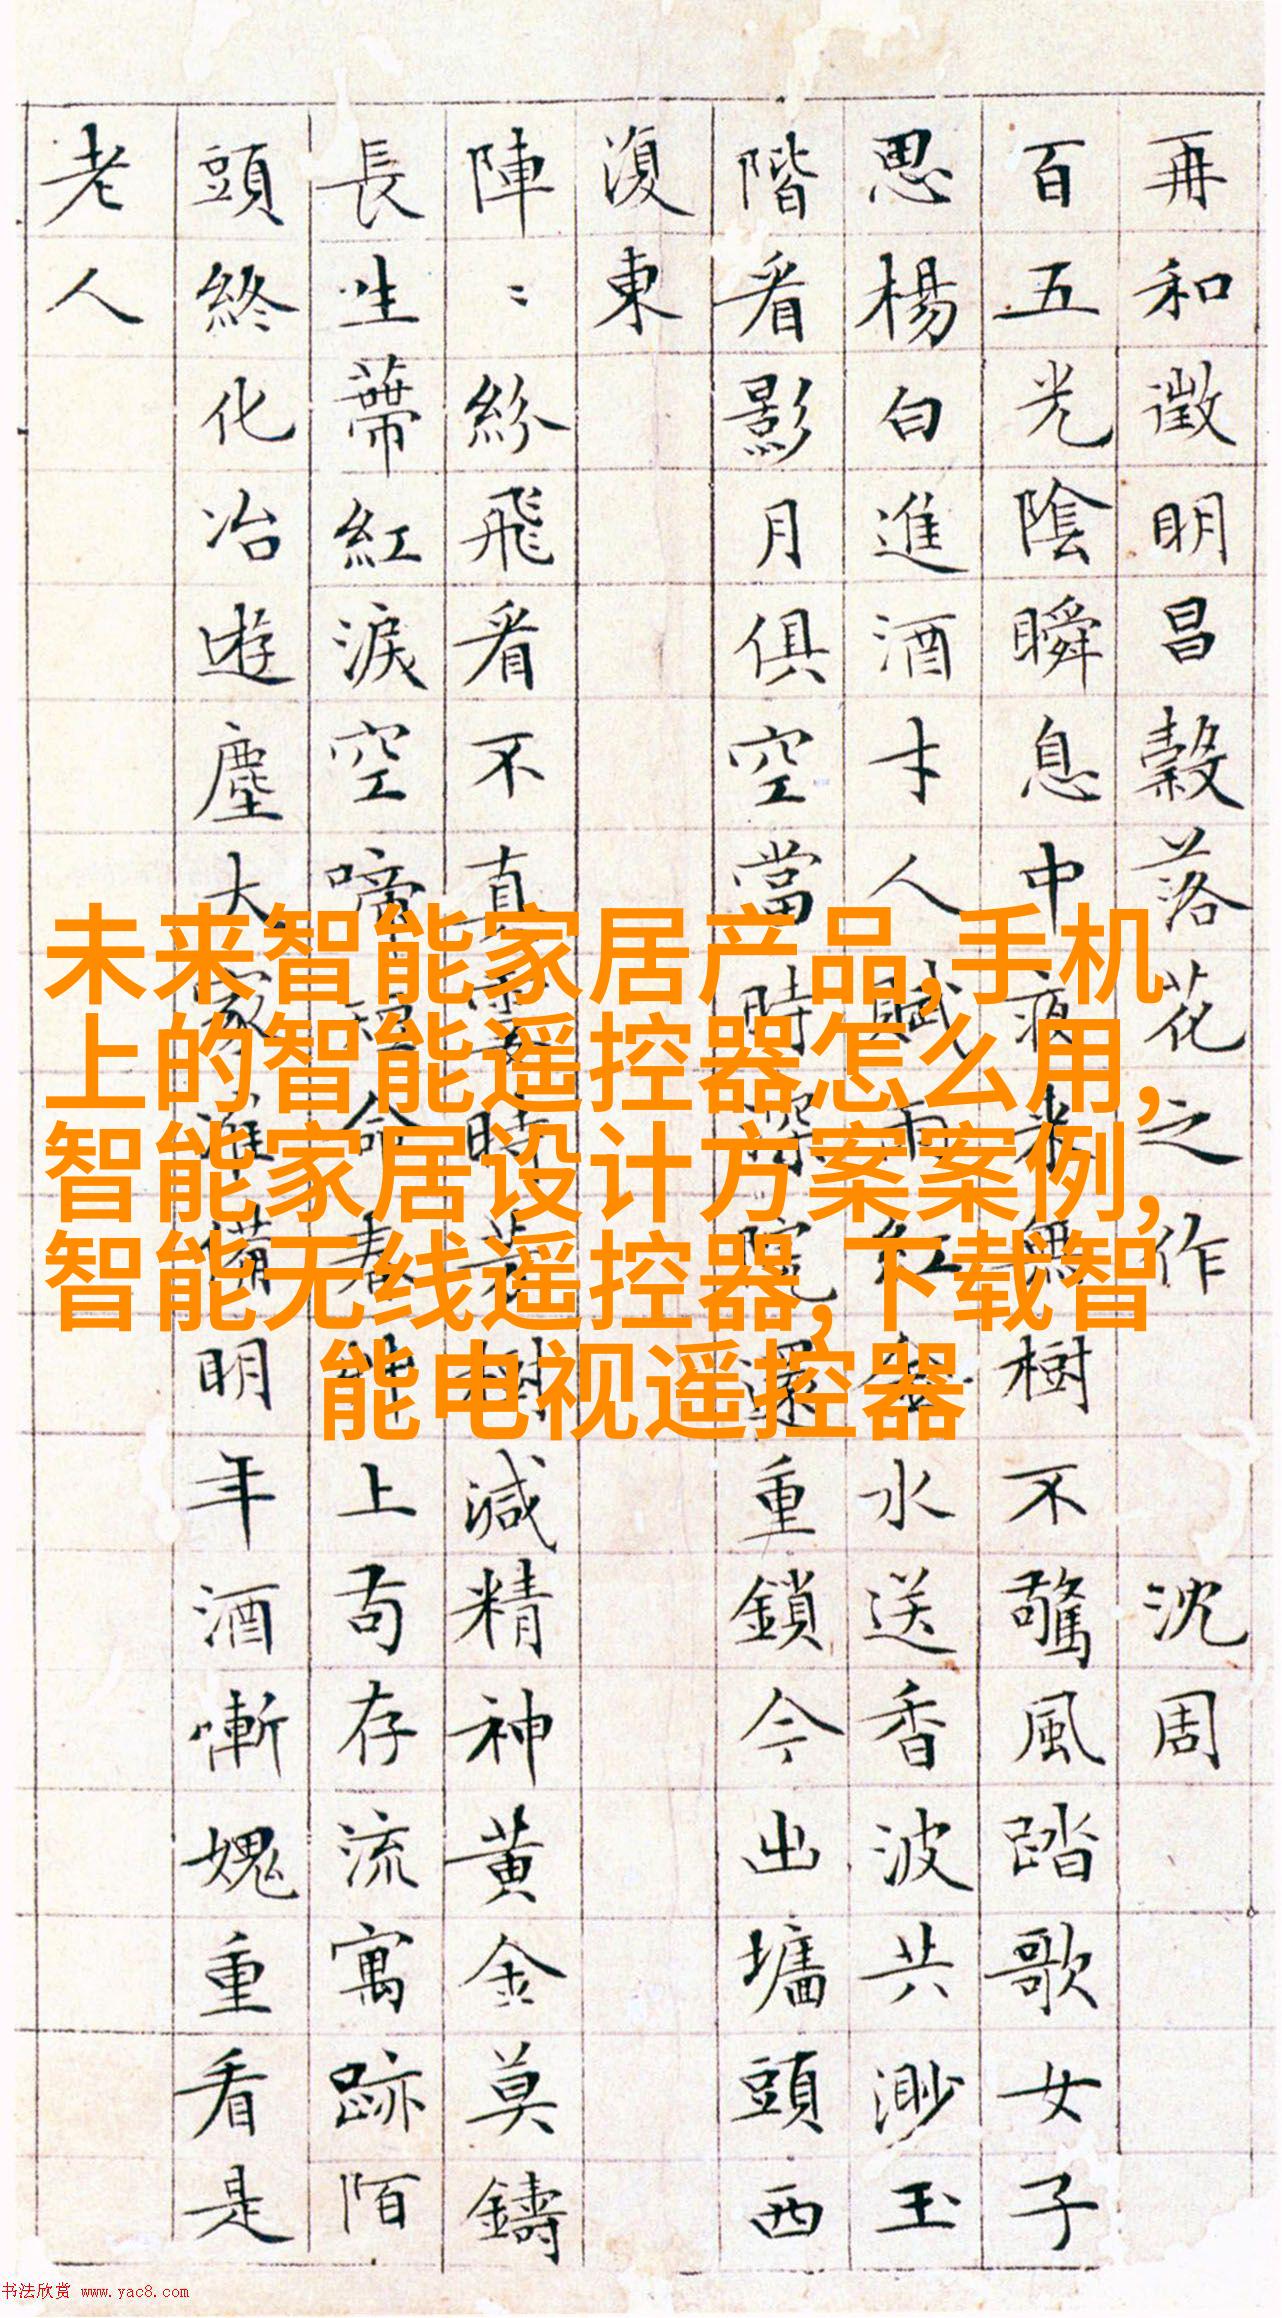 再和徵明昌穀落花之作 沈周
百五光陰瞬息中夜来無樹不驚風踏歌女子
思楊白進酒才人賦雨紅金水送香波共渺玉
階看影月俱空當時深院還重鎖今出墻頭西
復東
陣〻紛飛看不真霎時芳樹減精神黄金莫鑄
長生蒂紅淚空啼短命春艸上苟存流寓跡陌
頭終化冶遊塵大家准備明年酒慚愧重看是
老人
未来智能家居产品,手机
上的智能遥控器怎么用,
智能家居设计方案案例,
智能无线遥控器,下载智
能电视遥控器
书法欣赏 www.yac8.com